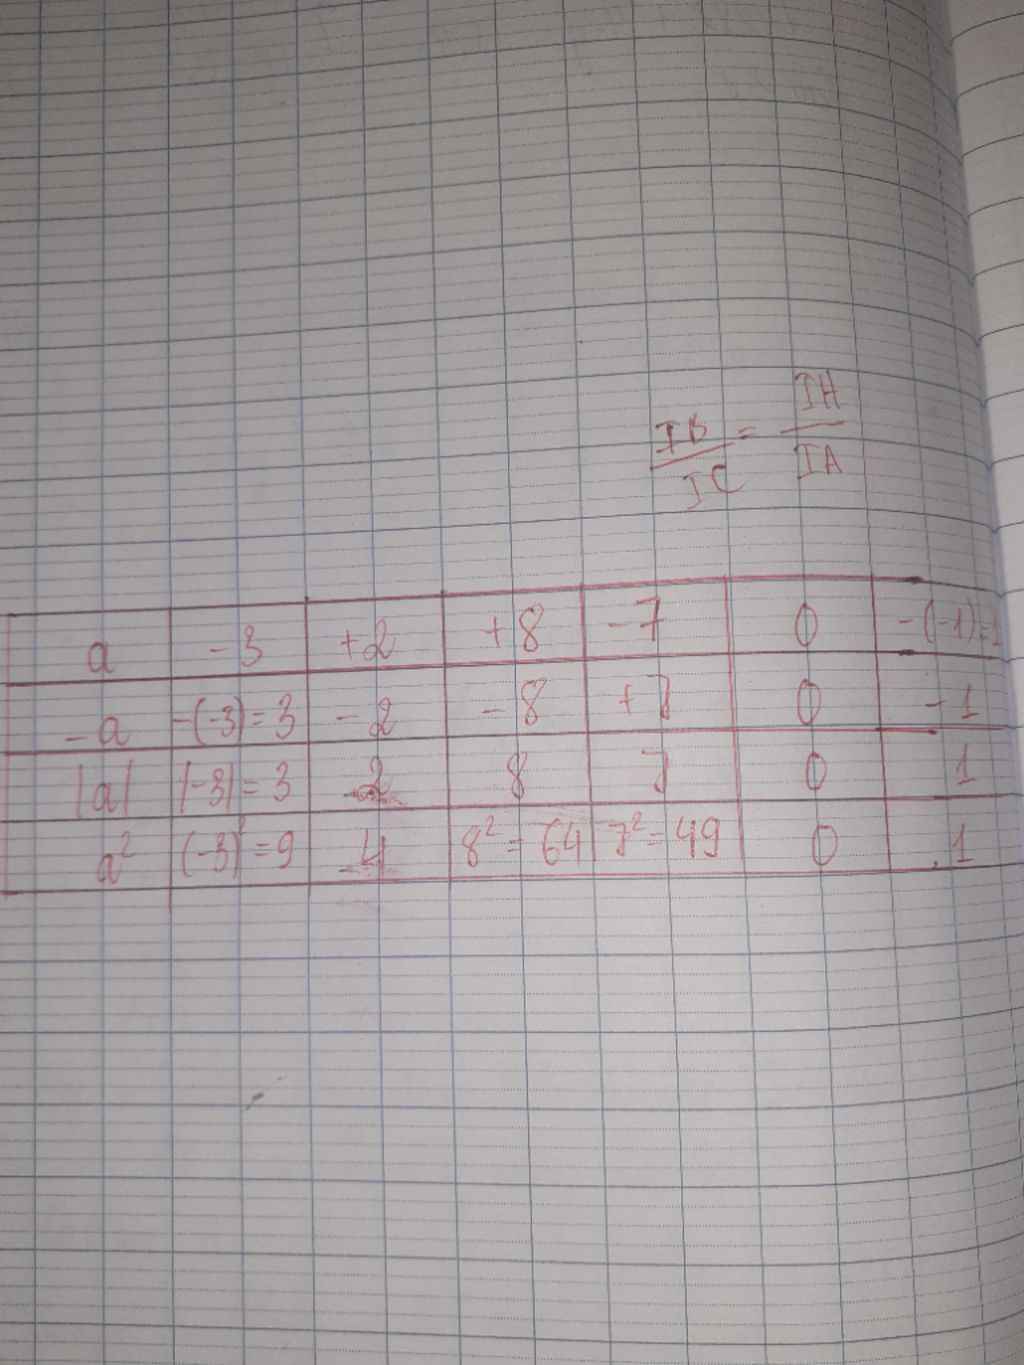 IB/IC = IH/IA
a -3 +2 +8 -7 0 -(-1)=1
-a -(-3)=3 -2 -8 +7 0 -1
|a| |-3|=3 2 8 7 0 1
a² (-3)²=9 4 8²=64 7²=49 0 1